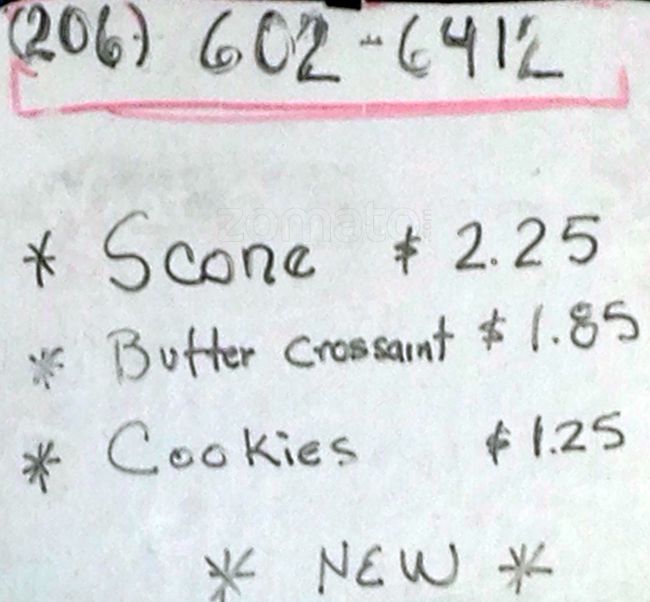 (206) 602-6412
zomato
* Scone $ 2.25
* Butter Crossaint $ 1.85
* Cookies $ 1.25
* NEW *